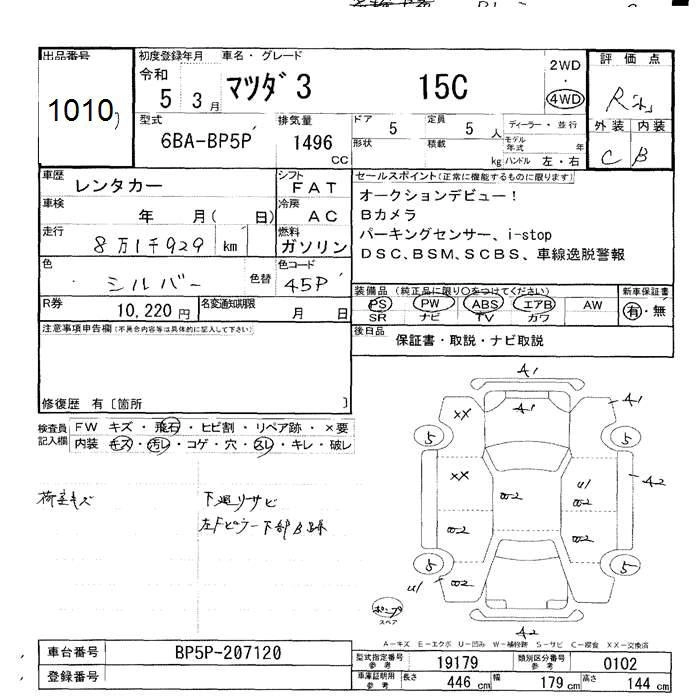 出品番号
1010
初度登録年月
令和
5 3月
車名・グレード
マツダ3 15C
2WD
・
4WD
評価点
外装 内装
C B
型式
6BA-BP5P
排気量
1496
CC
ドア
5
形状
定員
5 人
積載
kg
ディーラー・並行
モデル年式 年
ハンドル 左・右
車歴
レンタカー
車検
年 月( 日)
走行
8万1千929 km
色
シルバー
色替
R券
10,220円
名変通知期限
月 日
シフト
FAT
冷房
AC
燃料
ガソリン
色コード
45P
セールスポイント(正常に機能するものに限ります)
オークションデビュー!
Bカメラ
パーキングセンサー、i-stop
DSC、BSM、SCBS、車線逸脱警報
装備品(純正品に限り○をつけてください)
PS PW ABS エアB AW
SR ナビ TV カワ
新車保証書
有・無
後日品
保証書・取説・ナビ取説
注意事項申告欄(不具合内容等は具体的に記入して下さい)
修復歴 有〔箇所 〕
検査員記入欄
FW キズ・飛石・ヒビ割・リペア跡・×要
内装 キズ・汚レ・コゲ・穴・スレ・キレ・破レ
荷室キズ
下廻リサビ
A1
A1
A1
XX
5
5
XX
W2
U1
W2
A2
W2
W2
5
5
U1
W2
A2
スペア
A-キズ E-エクボ U-凹み W-補修跡 S-サビ C-腐食 XX-交換済
車台番号
BP5P-207120
登録番号
型式指定番号 参考
19179
類別区分番号 参考
0102
車庫証明用 参考
長さ 446 cm
幅 179 cm
高さ 144 cm